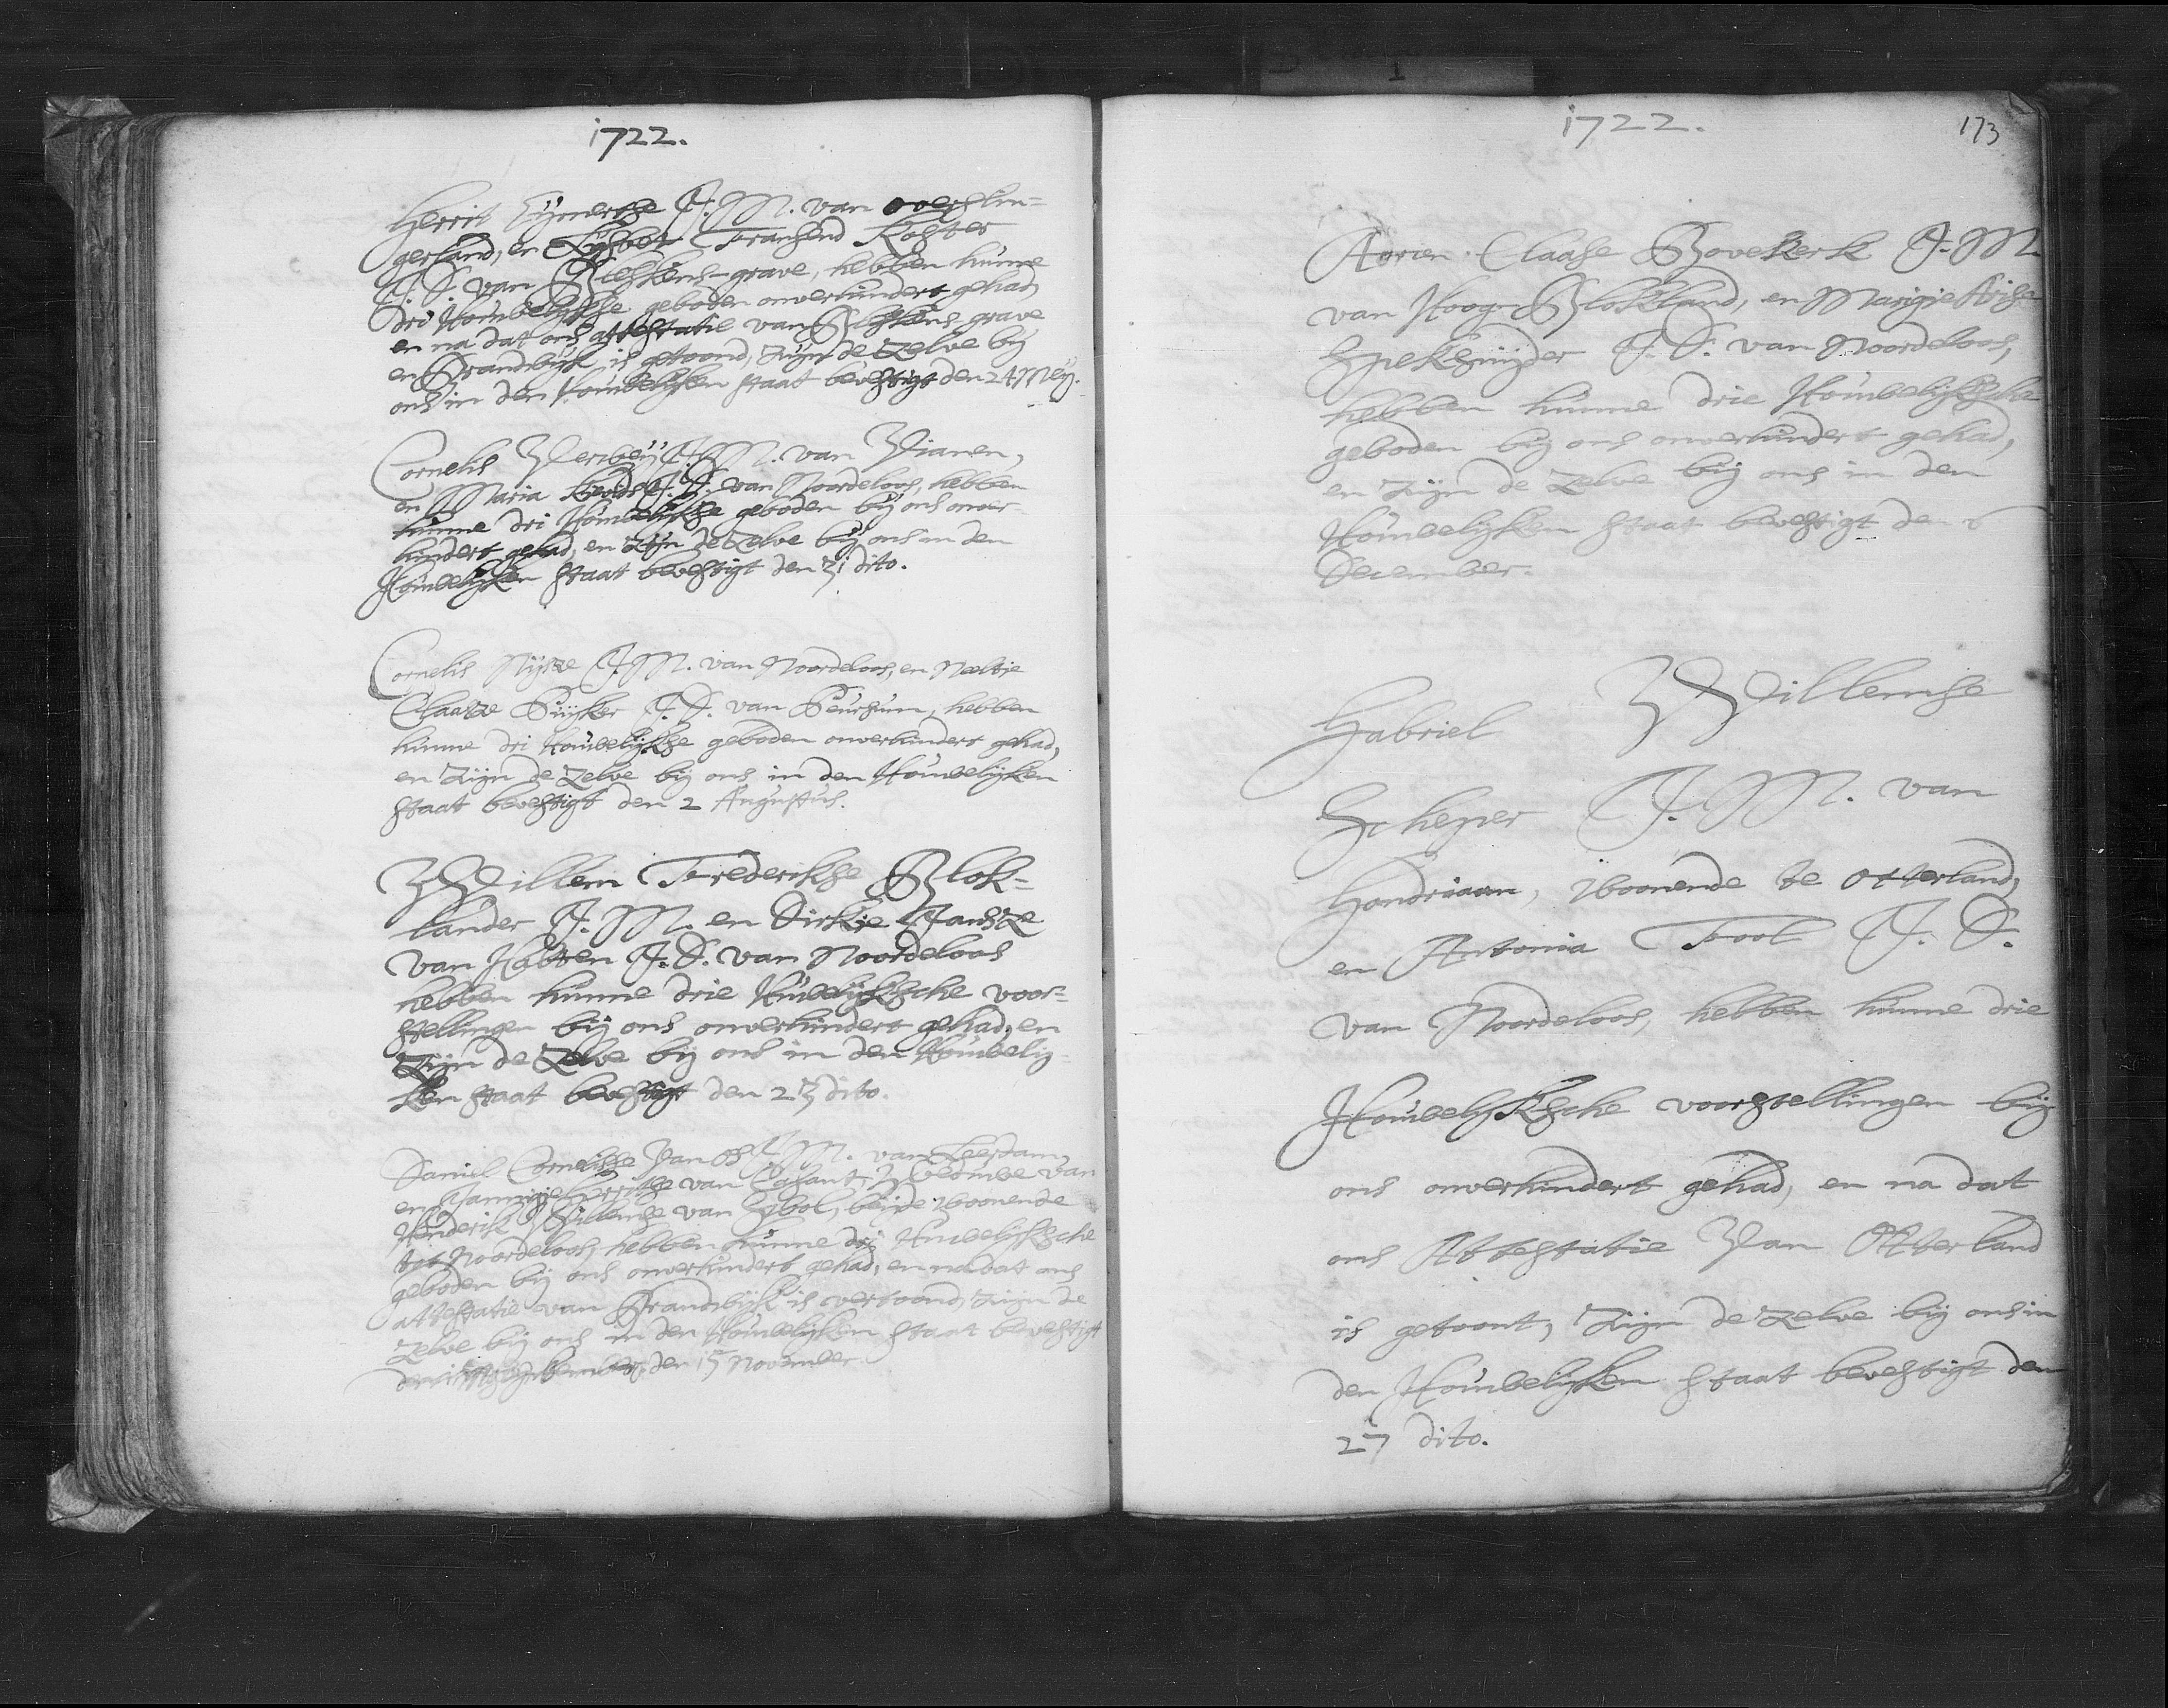 1722.
Gerrit Eÿmertse J: M. van overslin=
gerland, en Lÿsbet Fransend Koster
J: D. van Bleskens-grave, hebben hunne
dri Houwelÿkse geboden onverhindert gehad,
en na dat ons attestatie van Bleskens-grave
en Brandwÿk is getoond, zÿn de zelve bÿ
ons in den Houwelÿken staat bevestigt den 24 Meÿ.
Cornelis Verweÿ J: M. van Vianen,
en Maria J: D. van Noordeloos, hebben
hunne dri Houwelÿkse geboden bÿ ons onver-
hindert gehad, en zÿn de zelve bÿ ons in den
Houwelÿken staat bevestigt den 31 dito.
Cornelis Nÿsze J: M. van Noordeloos, en Neeltie
Claasze Buÿker J: D. van Peursum, hebben
hunne dri Houwelÿkse geboden onverhindert gehad,
en zÿn de zelve bÿ ons in den Houwelÿken
staat bevestigt den 2 Augustus.
Willem Frederikse Blok=
lander J: M. en Dirkje Jansze
van Houten J: D. van Noordeloos
hebben hunne drie Huwelÿksche voor=
stellingen bÿ ons onverhindert gehad, en
zÿn de zelve bÿ ons in den Houwelÿ-
ken staat bevestigt den 23 dito.
Daniel Cornelisse Van Os J: M. van Leerdam,
en Jannigje van Weduwe van
Henderik Willemse van Zÿbol, beÿde woonende
tot Noordeloos, hebben hunne dri Huwelÿksche
geboden bÿ ons onverhindert gehad, en na dat ons
attestatie van Brandwÿk is vertoond, zÿn de
zelve bÿ ons in den Houwelÿken staat bevestigt
den 15 November.
1722.
173
Adrien Claasse Bovekerk J: M.
van Hoog-Blokland, en Marigje Arise
Speksnÿder J: D. van Noordeloos,
hebben hunne drie Houwelÿksche
geboden bÿ ons onverhindert gehad,
en zÿn de zelve bÿ ons in den
Houwelÿken staat bevestigt den 6
December.
Gabriel Willemse
Scheper J: M. van
Gondriaan, woonende te Otterland,
en Antonia Tool J: D.
van Noordeloos, hebben hunne drie
Houwelÿksche voorstellingen bÿ
ons onverhindert gehad, en na dat
ons Attestatie Van Otterland
is getoont, zÿn de zelve bÿ ons in
den Houwelÿken staat bevestigt den
27 dito.